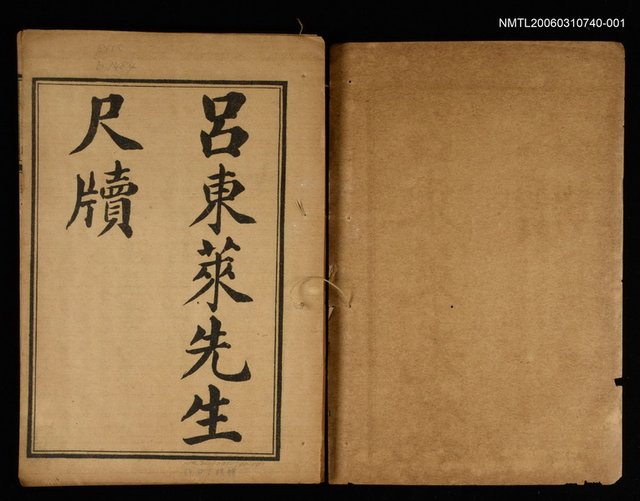 NMTL20060310740-001
呂東萊先生
尺牘